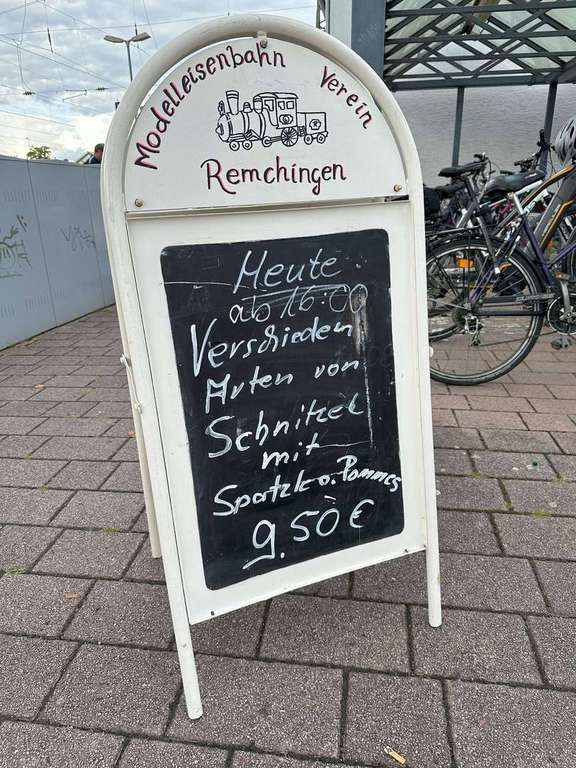 Modelleisenbahn Verein
Remchingen
Heute
ab 16:00
Verschieden
Arten von
Schnitzel
mit
Spatzle o. Pommes
9.50 €